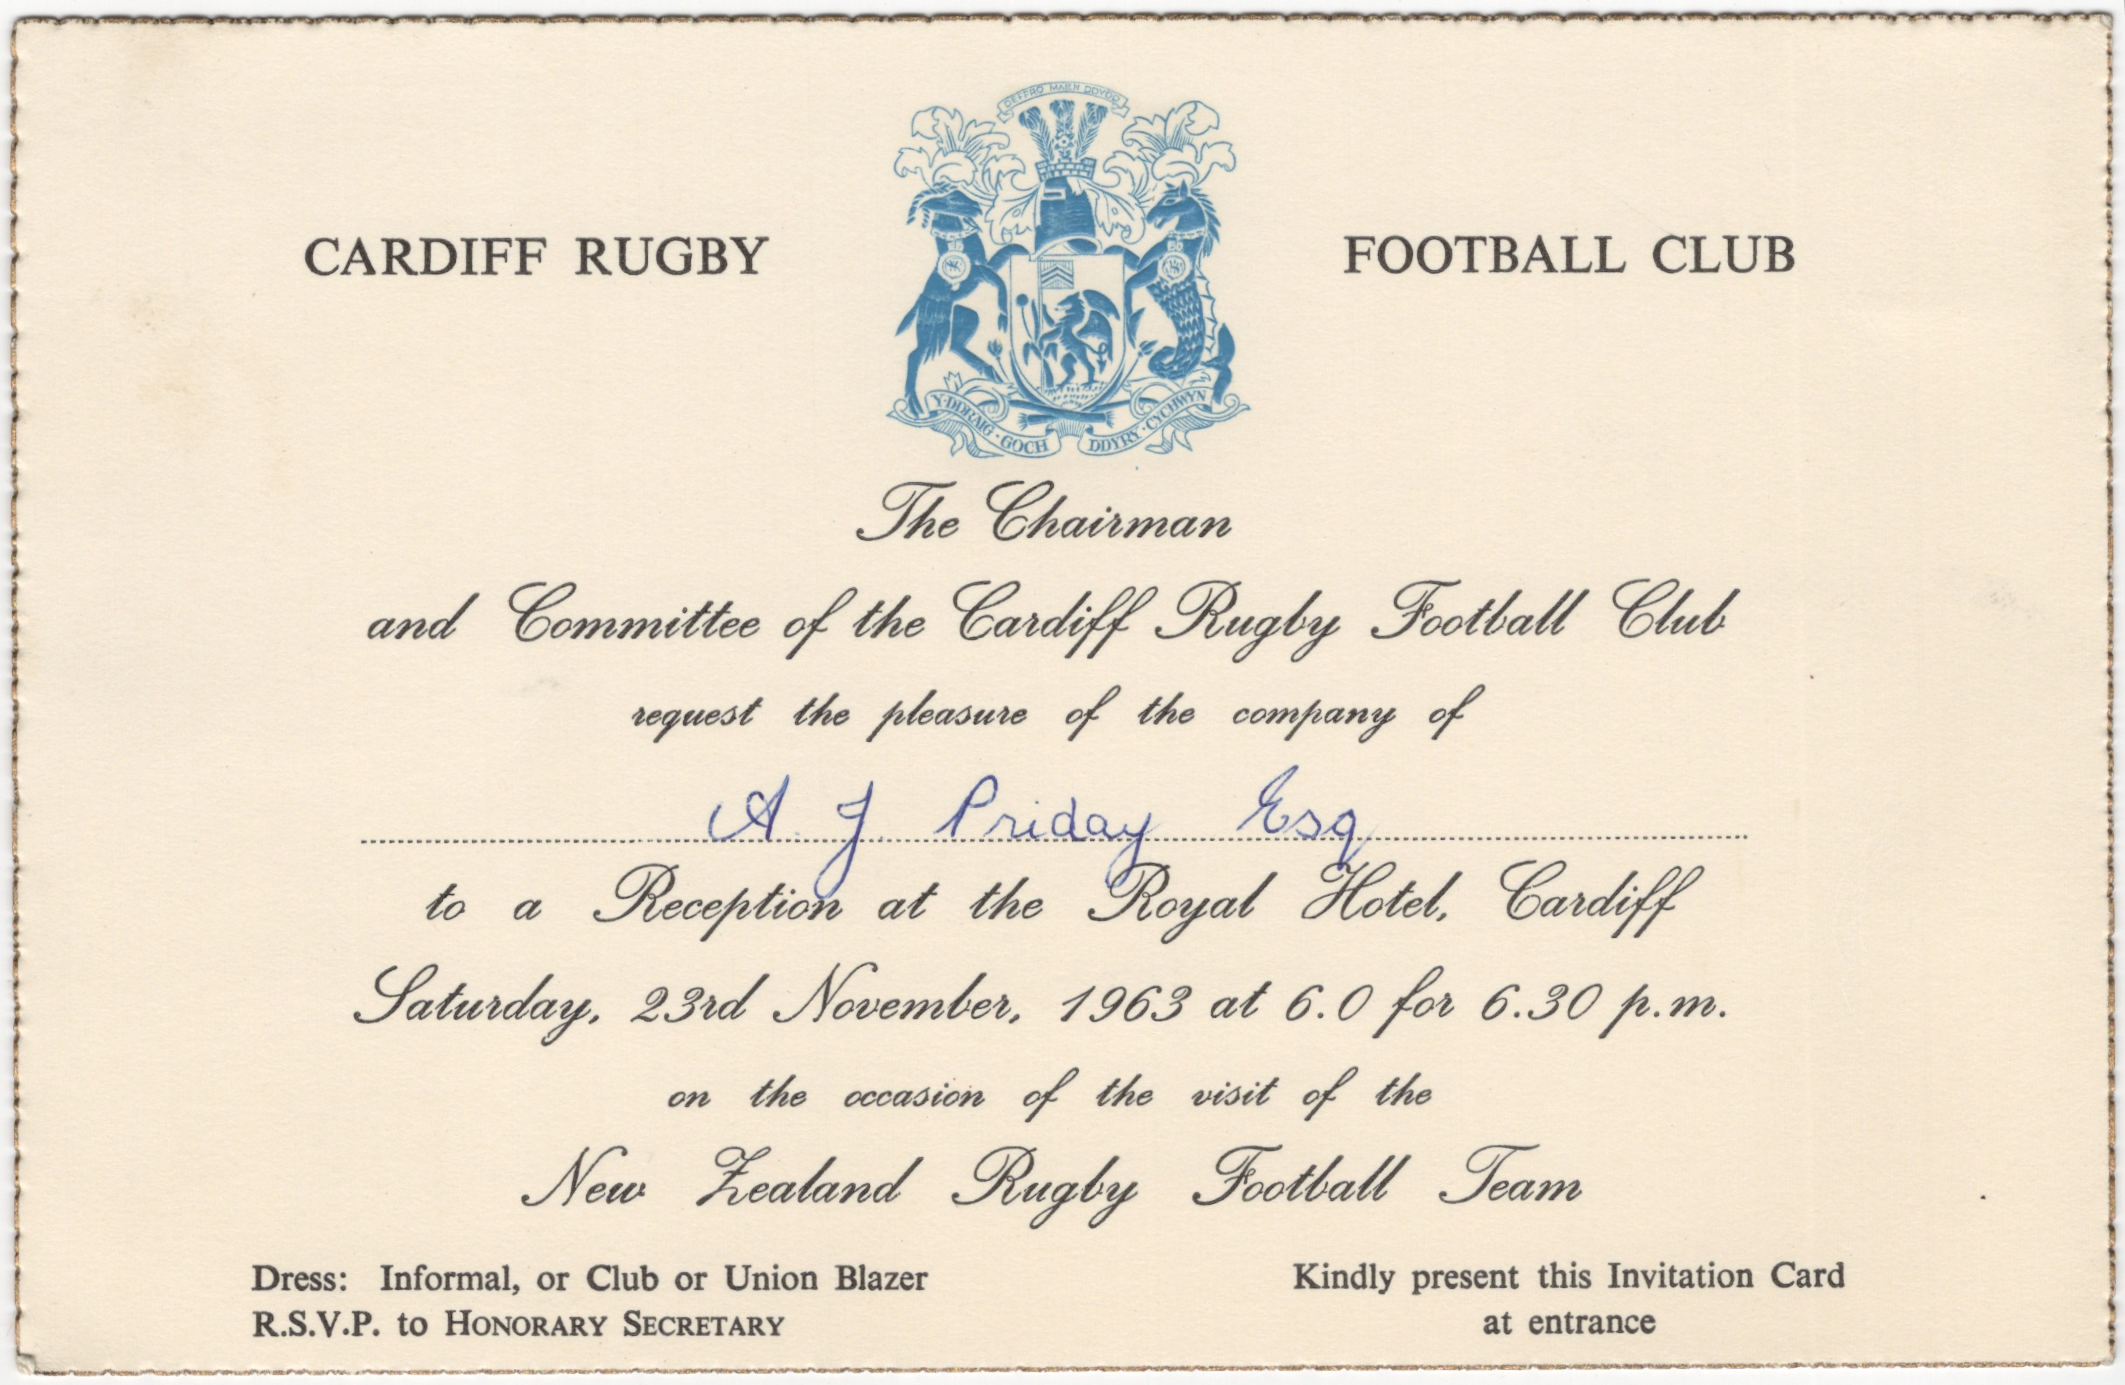 DEFFRO MAE'N DDYDD
CARDIFF RUGBY FOOTBALL CLUB
Y·DDRAIG·GOCH DDYRY·CYCHWYN
The Chairman
and Committee of the Cardiff Rugby Football Club
request the pleasure of the company of
A. J. Priday Esq
to a Reception at the Royal Hotel, Cardiff
Saturday, 23rd November, 1963 at 6.0 for 6.30 p.m.
on the occasion of the visit of the
New Zealand Rugby Football Team
Dress: Informal, or Club or Union Blazer
R.S.V.P. to HONORARY SECRETARY
Kindly present this Invitation Card
at entrance